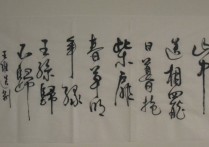 山中
送相罷
日暮掩
柴扉
春草明
年緑
王孫歸
不歸
王維送別